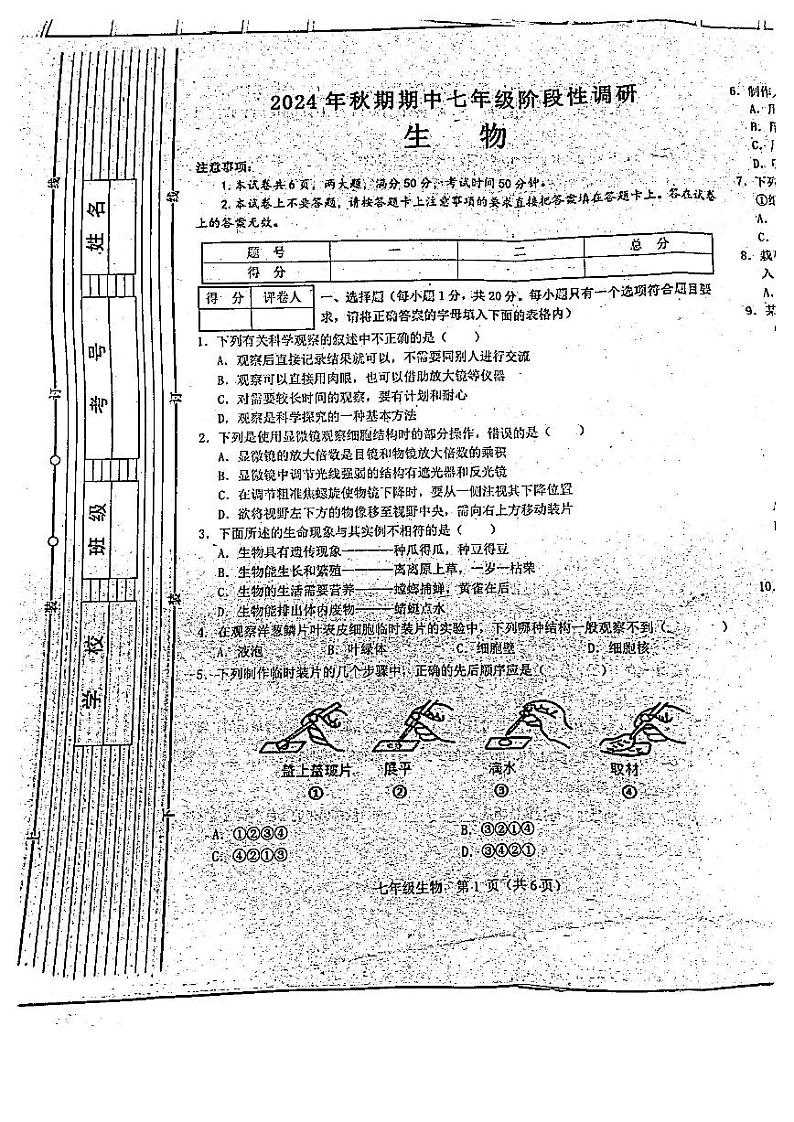 2024年秋期期中七年级阶段性调研
生 物
注意事项：
1.本试卷共6页，两大题，满分50分，考试时间50分钟。
2.本试卷上不要答题，请按答题卡上注意事项的要求直接把答案填在答题卡上。答在试卷
上的答案无效。
题 号 一 二 总 分
得 分
得 分 评卷人
一、选择题（每小题1分，共20分。每小题只有一个选项符合题目要
求，请将正确答案的字母填入下面的表格内）
1．下列有关科学观察的叙述中不正确的是（ ）
A．观察后直接记录结果就可以，不需要同别人进行交流
B．观察可以直接用肉眼，也可以借助放大镜等仪器
C．对需要较长时间的观察，要有计划和耐心
D．观察是科学探究的一种基本方法
2．下列是使用显微镜观察细胞结构时的部分操作，错误的是（ ）
A．显微镜的放大倍数是目镜和物镜放大倍数的乘积
B．显微镜中调节光线强弱的结构有遮光器和反光镜
C．在调节粗准焦螺旋使物镜下降时，要从一侧注视其下降位置
D．欲将视野左下方的物像移至视野中央，需向右上方移动装片
3．下面所述的生命现象与其实例不相符的是（ ）
A．生物具有遗传现象————种瓜得瓜，种豆得豆
B．生物能生长和繁殖————离离原上草，一岁一枯荣
C．生物的生活需要营养———螳螂捕蝉，黄雀在后
D．生物能排出体内废物———蜻蜓点水
4．在观察洋葱鳞片叶表皮细胞临时装片的实验中，下列哪种结构一般观察不到（ ）
A．液泡 B．叶绿体 C．细胞壁 D．细胞核
5．下列制作临时装片的几个步骤中，正确的先后顺序应是（ ）
盖上盖玻片 展平 滴水 取材
① ② ③ ④
A．①②③④ B．③②①④
C．④②①③ D．③④②①
七年级生物 第1页（共6页）
姓 名
考 号
班 级
学 校
线
订
装
线
订
装
6．制作
A．
B．
C．
D．
7．下列
A．
C．
8．
入
A．
9．某
10．